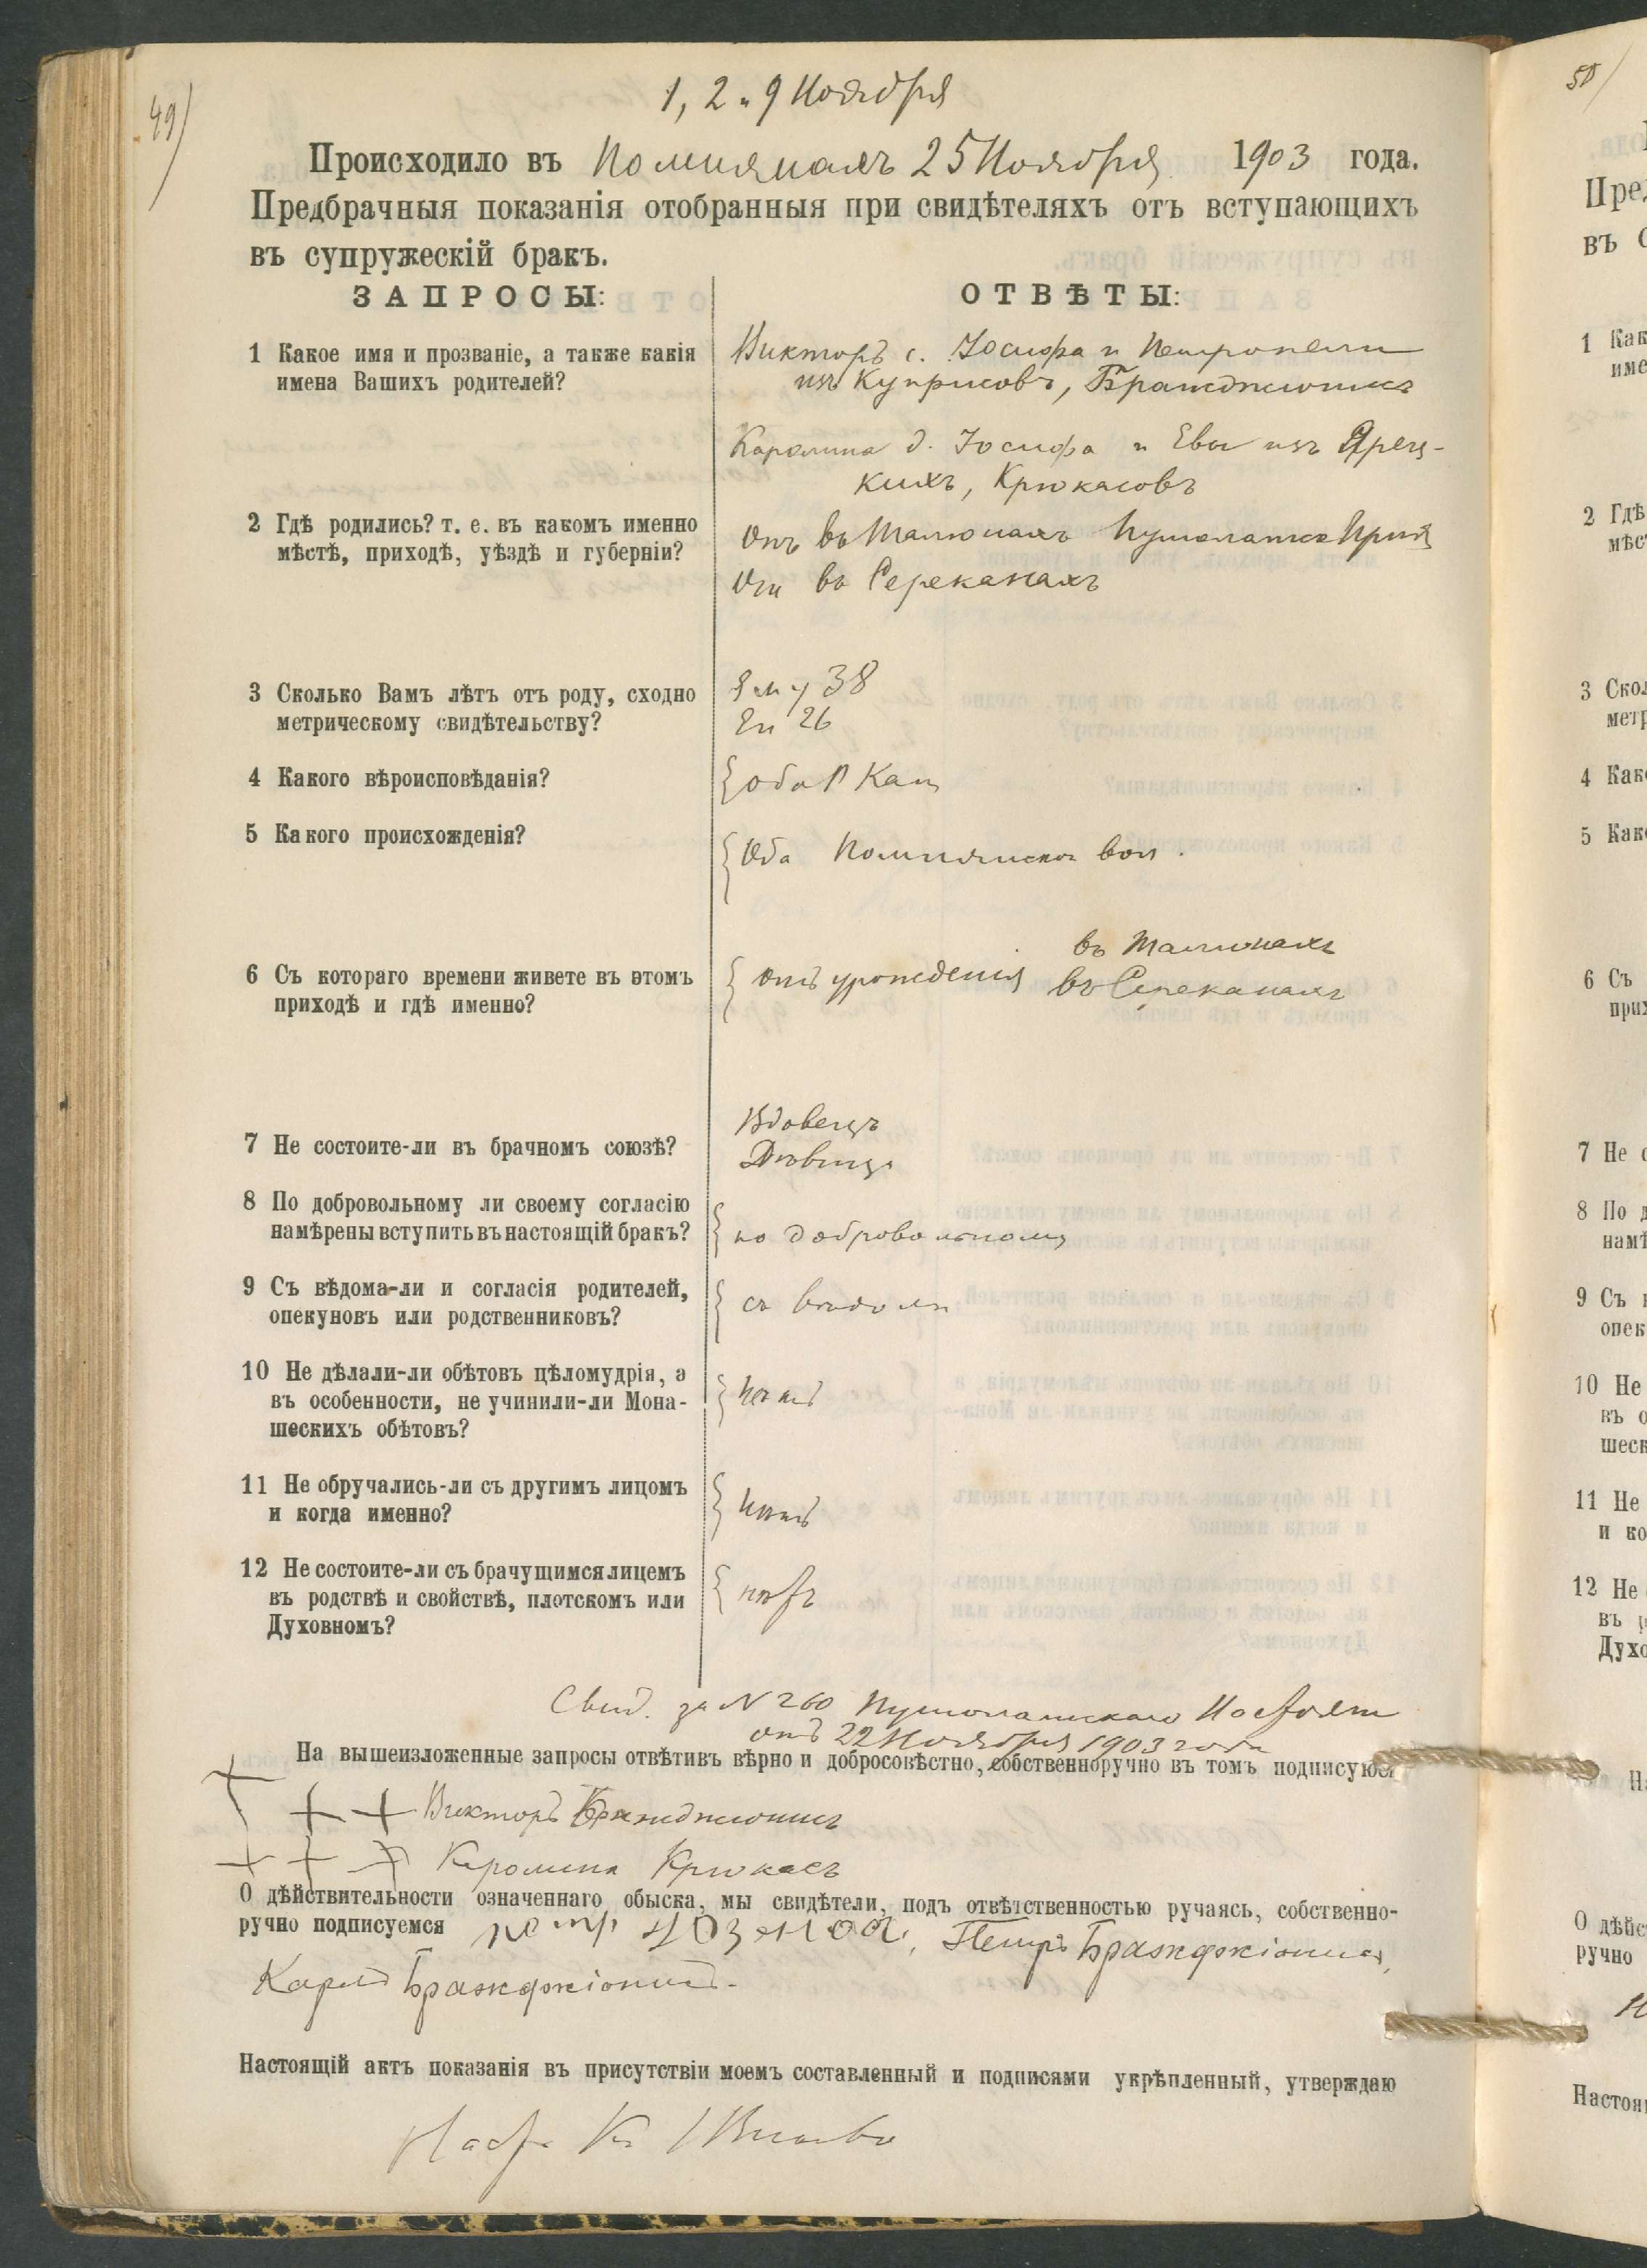 49)
1, 2 и 9 Ноября
Происходило въ Помпянахъ 25 Ноября 1903 года.
Предбрачныя показанія отобранныя при свидѣтеляхъ отъ вступающихъ
въ супружескій бракъ.
ЗАПРОСЫ:
ОТВѢТЫ:
1 Какое имя и прозваніе, а также какія
имена Вашихъ родителей?
Викторъ с. Іосифа и Петронели
изъ Куприсовъ,
Каролина д. Іосифа и Евы изъ Ярец-
кихъ, Крюкасовъ
2 Гдѣ родились? т. е. въ какомъ именно
мѣстѣ, приходѣ, уѣздѣ и губерніи?
Онъ въ Талюнахъ
Она въ Сереканахъ
3 Сколько Вамъ лѣтъ отъ роду, сходно
метрическому свидѣтельству?
Ему 38
Ей 26
4 Какого вѣроисповѣданія?
оба Р Кат
5 Какого происхожденія?
Оба вол.
6 Съ котораго времени живете въ этомъ
приходѣ и гдѣ именно?
отъ урожденія
въ Талюнахъ
въ Сереканахъ
7 Не состоите-ли въ брачномъ союзѣ?
Вдовецъ
Дѣвица
8 По добровольному ли своему согласію
намѣрены вступить въ настоящій бракъ?
по добровольному
9 Съ вѣдома-ли и согласія родителей,
опекуновъ или родственниковъ?
съ вѣдома
10 Не дѣлали-ли обѣтовъ цѣломудрія, а
въ особенности, не учинили-ли Мона-
шескихъ обѣтовъ?
нѣтъ
11 Не обручались-ли съ другимъ лицомъ
и когда именно?
нѣтъ
12 Не состоите-ли съ брачущимся лицемъ
въ родствѣ и свойствѣ, плотскомъ или
Духовномъ?
нѣтъ
Свид. за N 260
отъ 22 Ноября 1903 года
На вышеизложенные запросы отвѣтивъ вѣрно и добросовѣстно, собственноручно въ томъ подписуюсь
+ + + Викторъ
+ + + Каролина Крюкасъ
О дѣйствительности означеннаго обыска, мы свидѣтели, подъ отвѣтственностью ручаясь, собственно-
ручно подписуемся Петръ Бражджіонисъ,
Карлъ Бражджіонисъ.
Настоящій актъ показанія въ присутствіи моемъ составленный и подписями укрѣпленный, утверждаю
50/